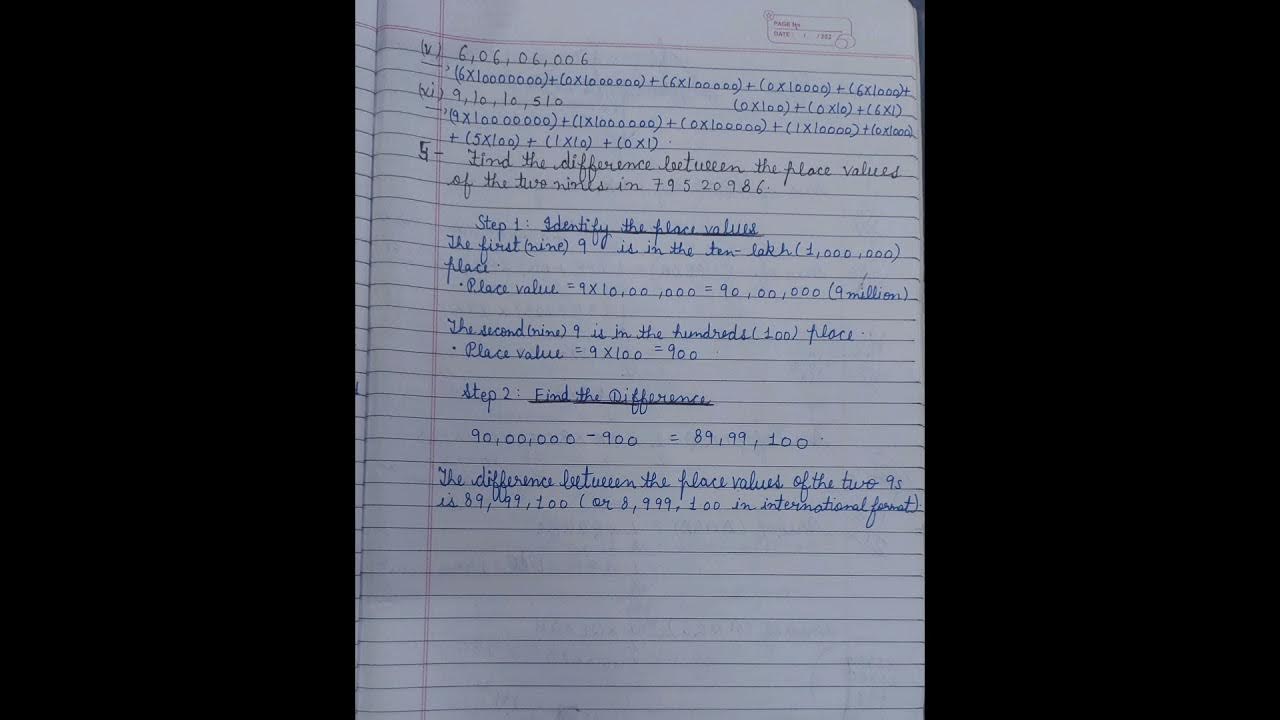 PAGE No.
DATE : / /202
(v) 6,06,06,006
(6X10000000)+(0X1000000)+(6X100000)+(0X10000)+(6X1000)+
(0X100)+(0X10)+(6X1)
(vi) 9,10,10,510
(9X10000000)+(1X1000000)+(0X100000)+(1X10000)+(0X1000)
+(5X100)+(1X10)+(0X1).
5- Find the difference between the place values
of the two nines in 79520986.
Step 1: Identify the place values
The first(nine) 9 is in the ten-lakh(1,000,000)
place.
• Place value = 9X10,00,000 = 90,00,000 (9 million)
The second(nine) 9 is in the hundreds(100) place.
• Place value = 9X100 = 900
Step 2: Find the Difference
90,00,000 - 900 = 89,99,100.
The difference between the place values of the two 9s
is 89,99,100 (or 8,999,100 in international format).